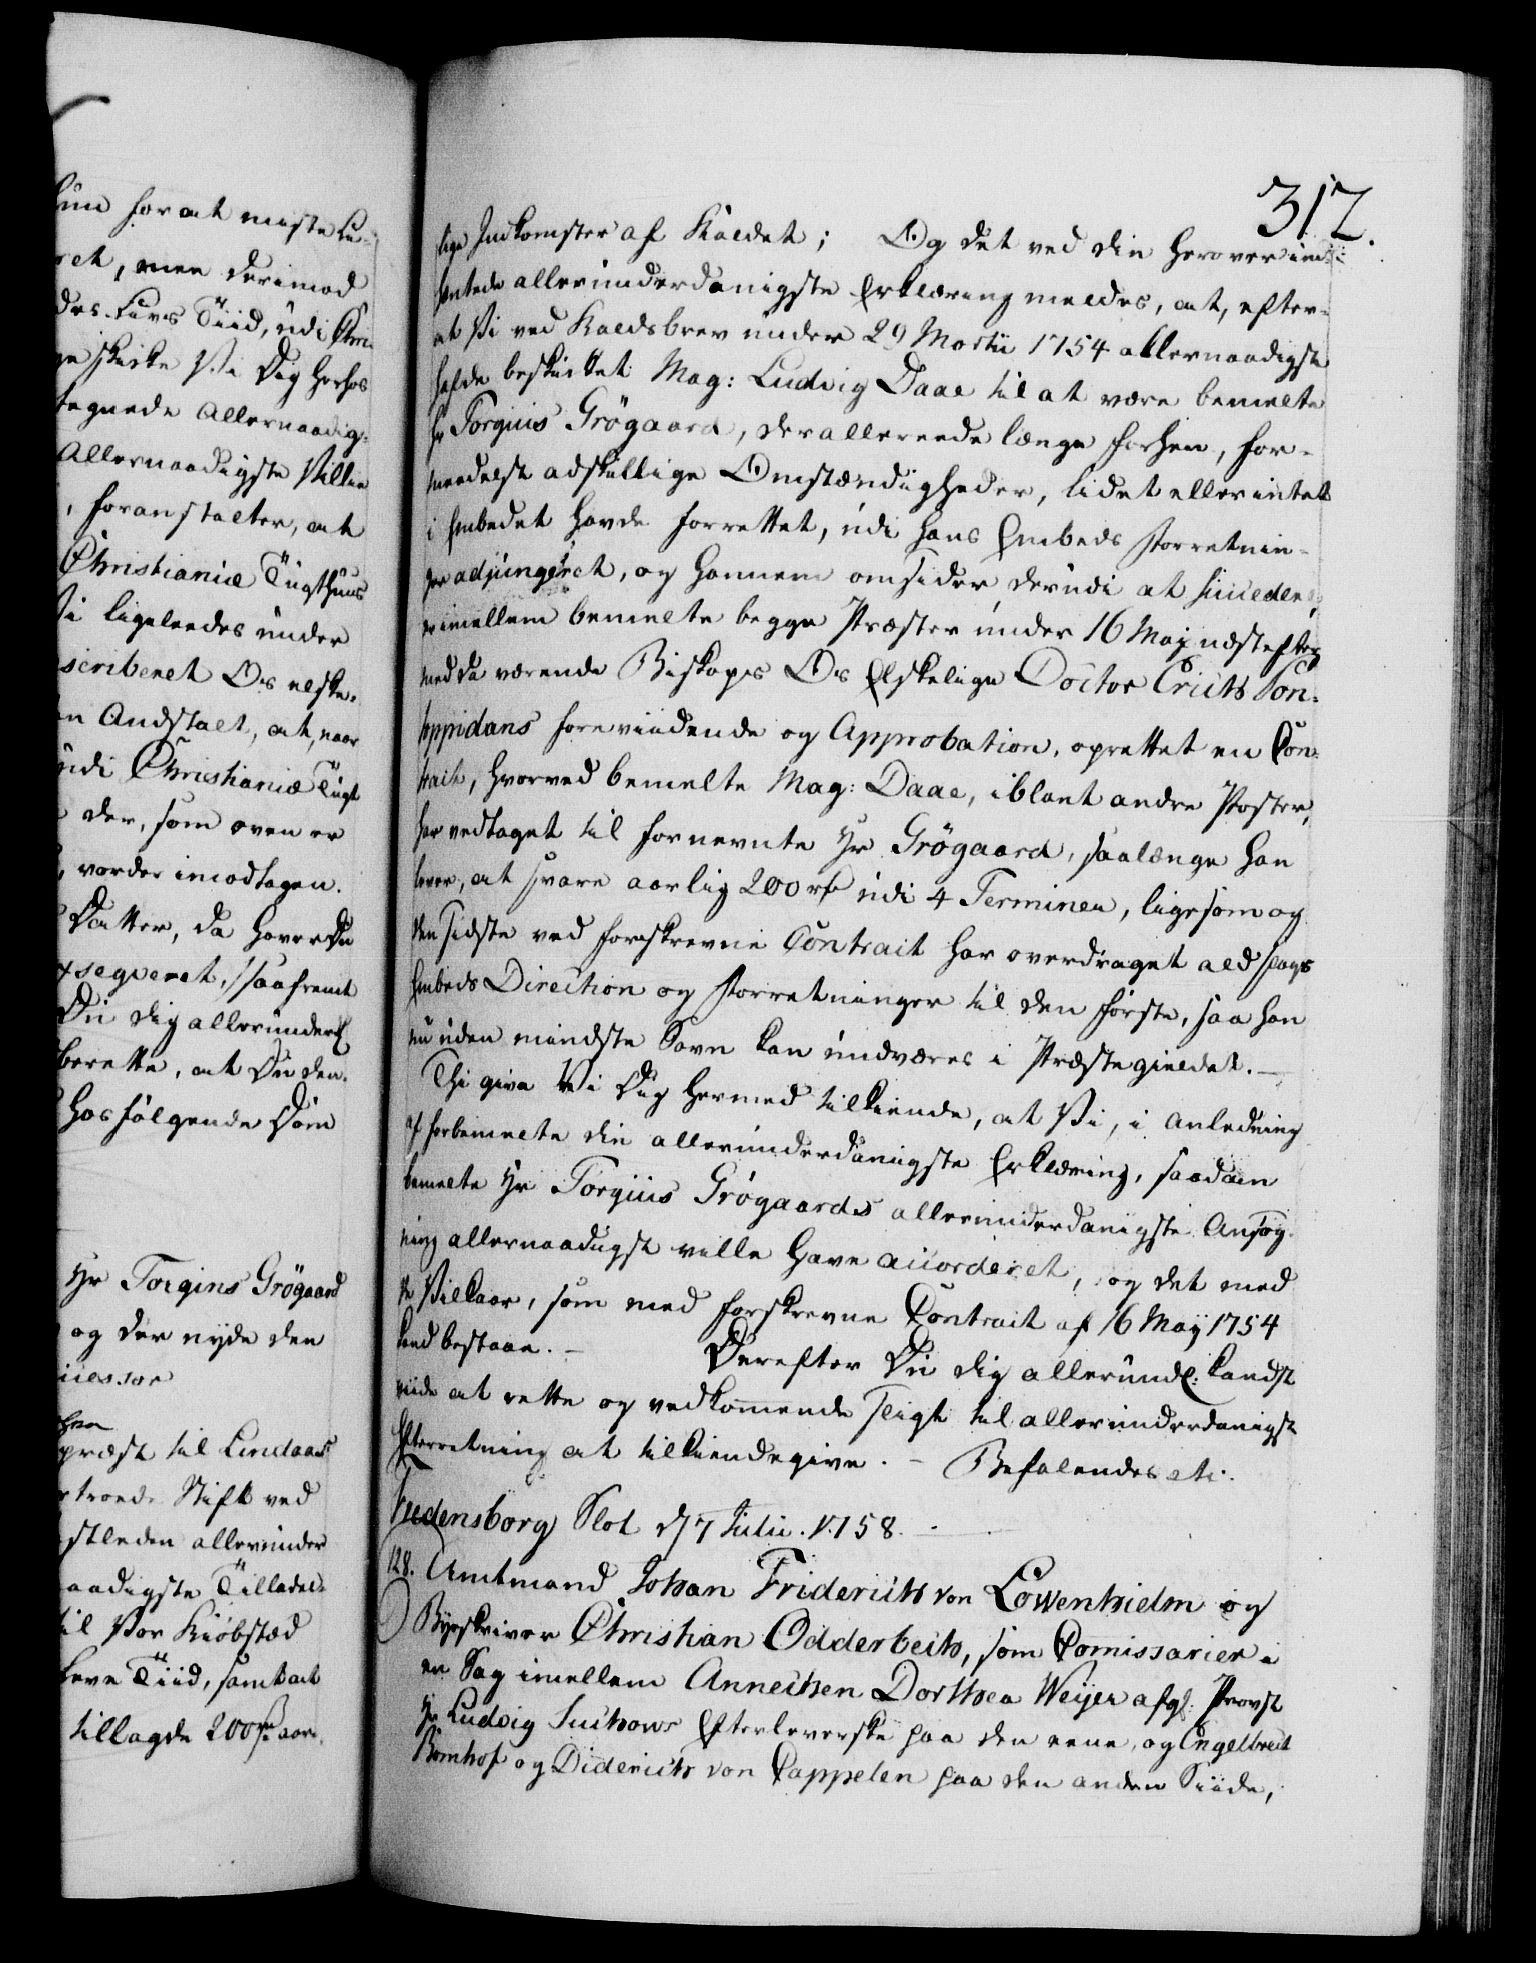 hun for at miste Li-
ret, men derimod
des Livs Tiid, udi Chri-
ge skicke Vi Dig herhos
tegnede Allernaadig-
Allernaadigste Villie
, foranstalter, at
Christianiæ Tugthuus
Vi ligeleedes under
scriberet Os elske-
en Andstalt, at, naar
udi Christianiæ Tugt
der, som oven er
, vorder imodtagen.
Datter, da haver Du
exseqveret, saafremt
Du dig allerunder
berette, at Du den
hos følgende Dom
Hr Torgius Grøgaard
og der nyde den
uccessor
præst til Lindaas
troede Stift ved
stleden allerunder
aadigste Tilladel-
til Vor Kiøbstæd
Leve Tiid, samt at
tillagde 200 rd aar-
312.
lige Indkomster af Kaldet; Og det ved din herover ind-
hentede allerunderdanigste Erklæring meldes, at, efter-
at Vi ved Kaldsbrev under 29 Martii 1754 allernaadigst
hafde beskicket Mag: Ludvig Daae til at være bemelte
Hr Torgius Grøgaard, der allereede længe forhen, for-
meedelst adskillige Omstændigheder, lidet eller intet
i Embedet havde forrettet, udi hans Embeds Forretnin-
ger adjungeret, og hannem omsider derudi at succedere,
er imellem bemelte begge Præster under 16 Maj næstefter
med da værende Biskops Os Elskelige Doctor Erichs Pon-
toppidans forevidende og Approbation, oprettet en Con-
tract, hvorved bemelte Mag: Daae, iblant andre Poster,
har vedtaget til fornevnte Hr Grøgaard, saalænge han
lever, at svare aarlig 200 rd udi 4 Terminer, ligesom og
den sidste ved forskrevne Contract har overdraget ald slags
Embeds Direction og Forretninger til den første, saa han
nu uden mindste Savn kan undværes i Præstegieldet. —
Thi give Vi Dig hermed tilkiende, at Vi, i anledning
af forbemelte din allerunderdanigste Erklæring, saadan
bemelte Hr Torgius Grøgaards allerunderdanigste Ansøg-
ning allernaadigst ville have accorderet, og det med
de Vilkaar, som med forskrevne Contract af 16 Maij 1754
kand bestaae. — Derefter Du dig allerund: kandst
viide at rette og vedkommende sligt til allerunderdanigst
Efterretning at tilkiendegive. — Befalendes etc.
Fredensborg Slot d 7 Julii 1758. —
128. Amtmand Johan Friderich von Löwenhielm og
Byeskriver Christian Odderbech, som Comissarier i
en Sag imellem Annechen Dorthea Weijer afg: Provst
Hr Ludvig Suchows Efterleverske paa den eene, og Engelbrect
Bomhof og Diderich von Cappelen paa den anden Siide,